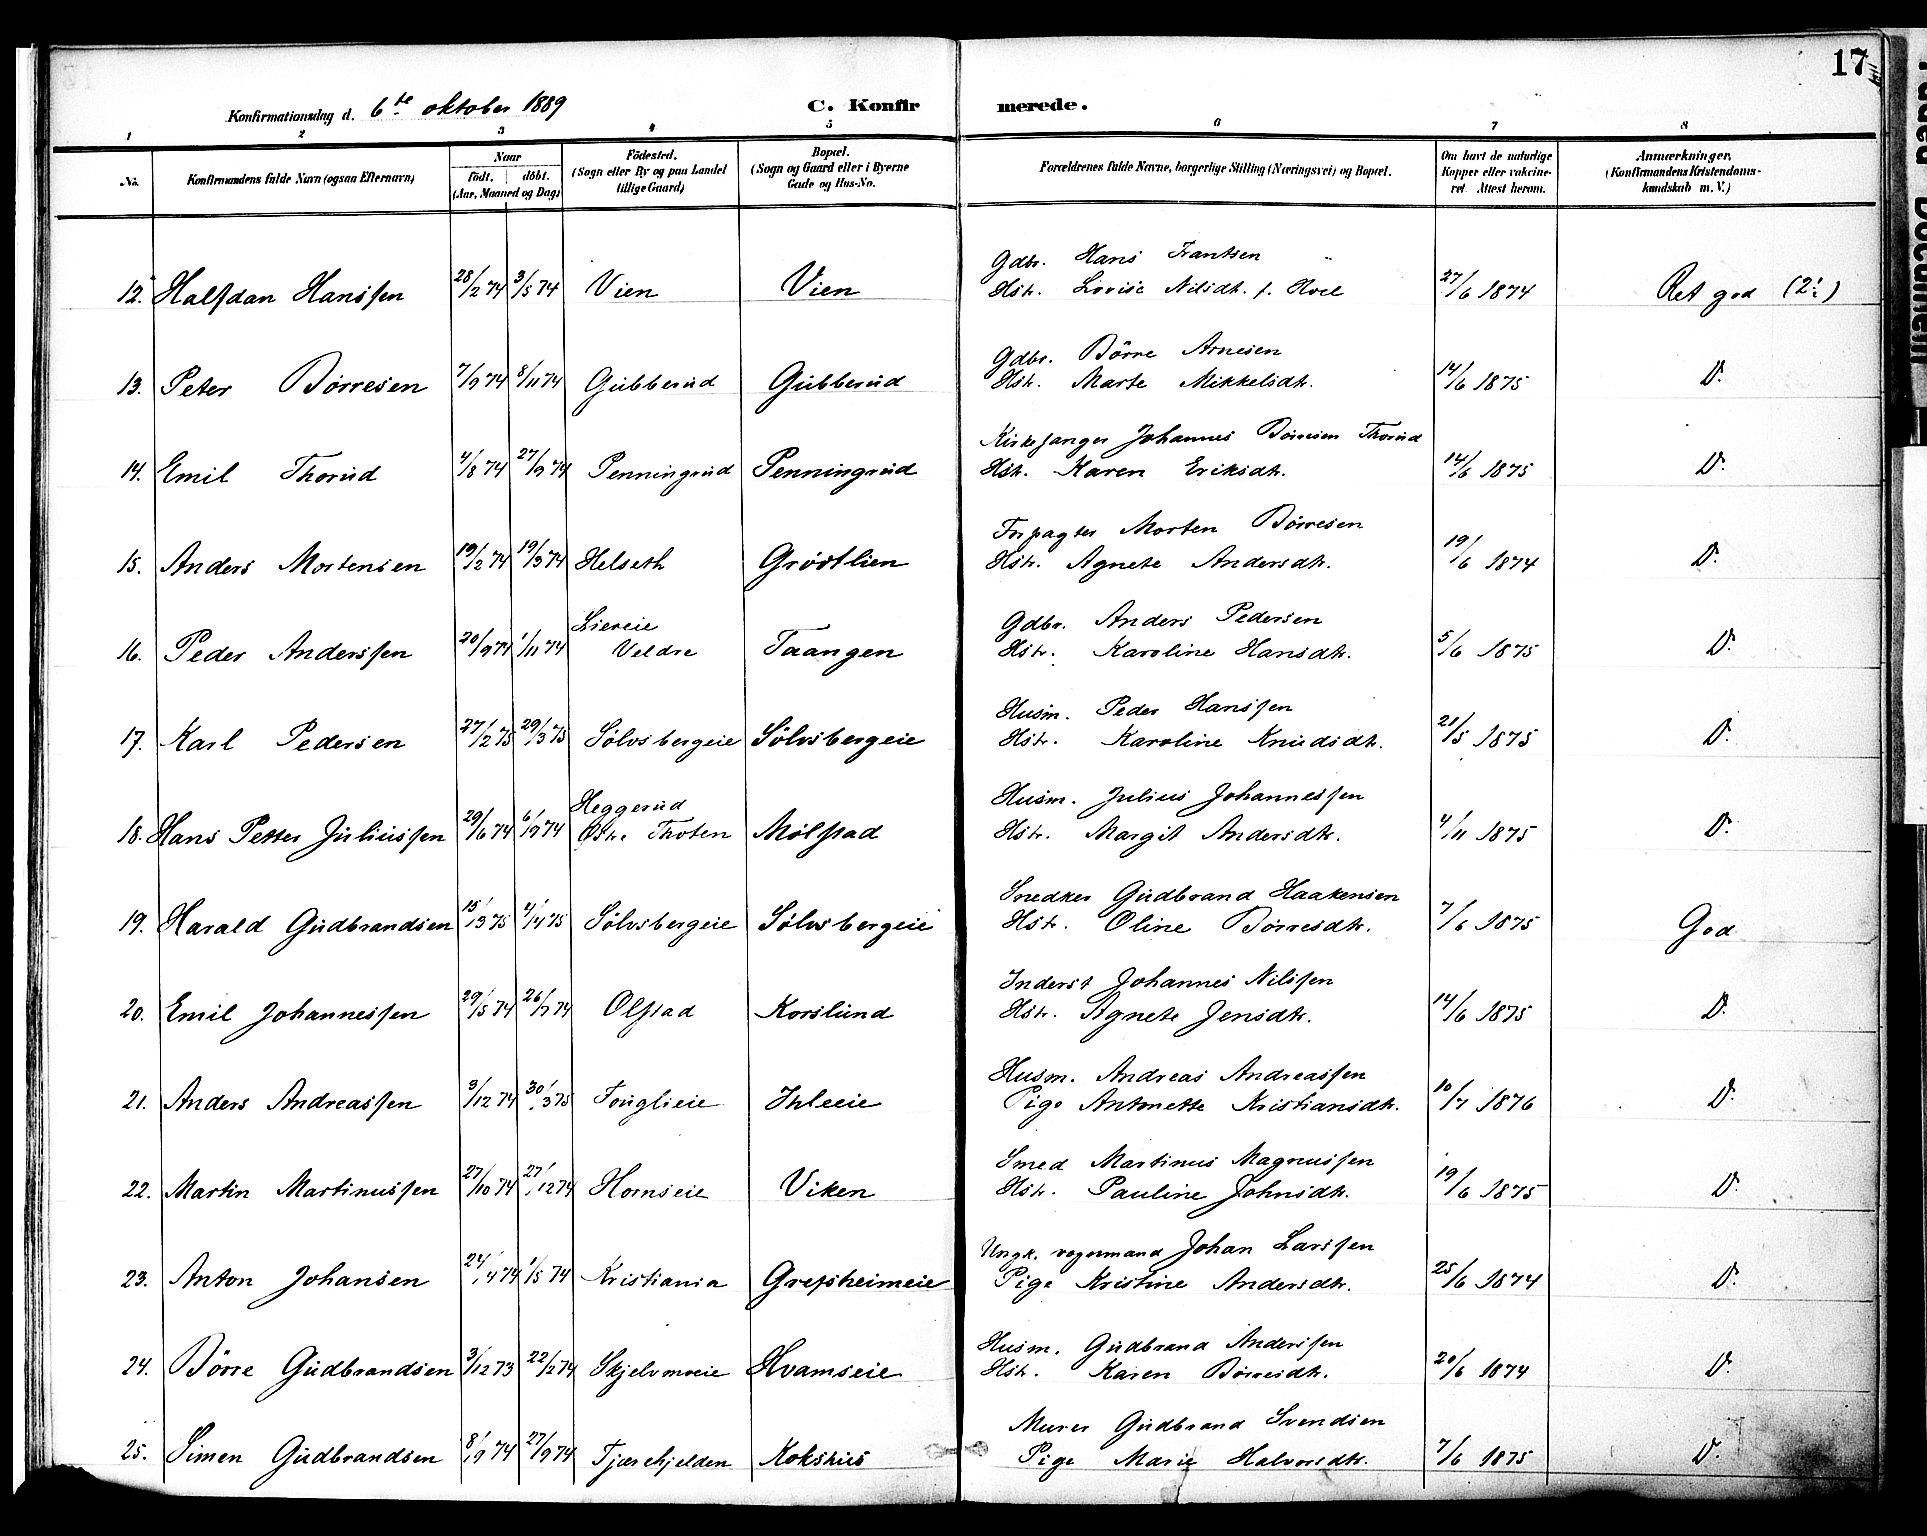 17
Konfirmationsdag d. 6te oktober 1889
C. Konfirmerede.
1 2 3 4 5 6 7 8
No.
Konfirmandens fulde Navn (ogsaa Efternavn)
Naar
Födt. döbt.
(Aar, Maaned og Dag)
Födested.
(Sogn eller By og paa Landet
tillige Gaard)
Bopæl.
(Sogn og Gaard eller i Byerne
Gade og Hus-No.
Forældrenes fulde Navne, borgerlige Stilling (Næringsvei) og Bopæl.
Om havt de naturlige
Kopper eller vakcine-
ret. Attest herom.
Anmærkninger.
(Konfirmandens Kristendoms-
kundskab m. V.)
Gdbr. Hans Frantsen
12. Halfdan Hanssen 28/2 74 3/5 74 Vien Vien Hstr. Lovise Nilsdtr. f. Hoel 27/6 1874 Ret god (2:)
Gdbr. Börre Arnesen
13. Peter Börresen 7/9 74 8/11 74 Gubberud Gubberud Hstr. Marte Mikkelsdtr. 14/6 1875 D.
Kirkesanger Johannes Börresen Thorud
14. Emil Thorud 4/8 74 27/9 74 Penningrud Penningrud Hstr. Karen Eriksdtr. 14/6 1875 D.
Forpagter Morten Börresen
15. Anders Mortensen 19/2 74 19/3 74 Helseth Gröstlien Hstr. Agnete Andersdtr. 19/6 1874 D.
Liereie Gdbr. Anders Pedersen
16. Peder Anderssen 20/9 74 1/11 74 Veldre Taangen Hstr. Karoline Hansdtr. 5/6 1875 D.
Husm. Peder Hanssen
17. Karl Pedersen 27/2 75 29/3 75 Sölvsbergeie Sölvsbergeie Hstr. Karoline Knudsdtr. 21/5 1875 D.
Heggerud Husm. Julius Johannessen
18. Hans Petter Juliussen 29/6 74 6/9 74 Östr. Thoten Mölstad Hstr. Margit Andersdtr. 4/11 1875 D.
Snedker Gudbrand Haakensen
19. Harald Gudbrandsen 15/3 75 4/4 75 Sölvsbergeie Sölvsbergeie Hstr. Oline Börresdtr. 7/6 1875 God
Inderst Johannes Nilssen
20. Emil Johannessen 29/5 74 26/7 74 Olstad Korslund Hstr. Agnete Jensdtr. 14/6 1875 D.
Husm. Andreas Andreassen
21. Anders Andreassen 3/12 74 30/3 75 Fouglieie Ihleeie Pige Antonette Kristiansdtr. 10/7 1876 D.
Smed Martinus Magnussen
22. Martin Martinussen 27/10 74 27/12 74 Hornseie Viken Hstr. Pauline Johnsdtr. 19/6 1875 D.
Ungk. vognmand Johan Larssen
23. Anton Johansen 24/4 74 1/5 74 Kristiania Grefsheimeie Pige Kristine Andersdtr. 25/6 1874 D.
Husm. Gudbrand Anderssen
24. Börre Gudbrandsen 3/12 73 22/2 74 Skjelvmreie Hvamseie Hstr. Karen Börresdtr. 20/6 1874 D.
Murer Gudbrand Svendsen
25. Simen Gudbrandsen 8/9 74 27/9 74 Tjærehjelden Kokshus Pige Marie Halvorsdtr. 7/6 1875 D.